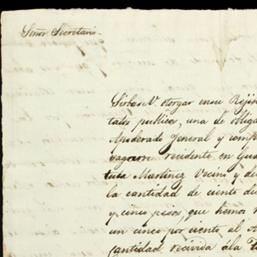 Señor Secretario.
Sirbas V. otorgar en su Rejis
tales publico, una de obliga
Apoderado Jeneral y comp
residente en Gua
Martinez Vecino y du
la cantidad de ciento
y cinco pesos, que hemos
un cinco por ciento al
Cantidad recivida á la